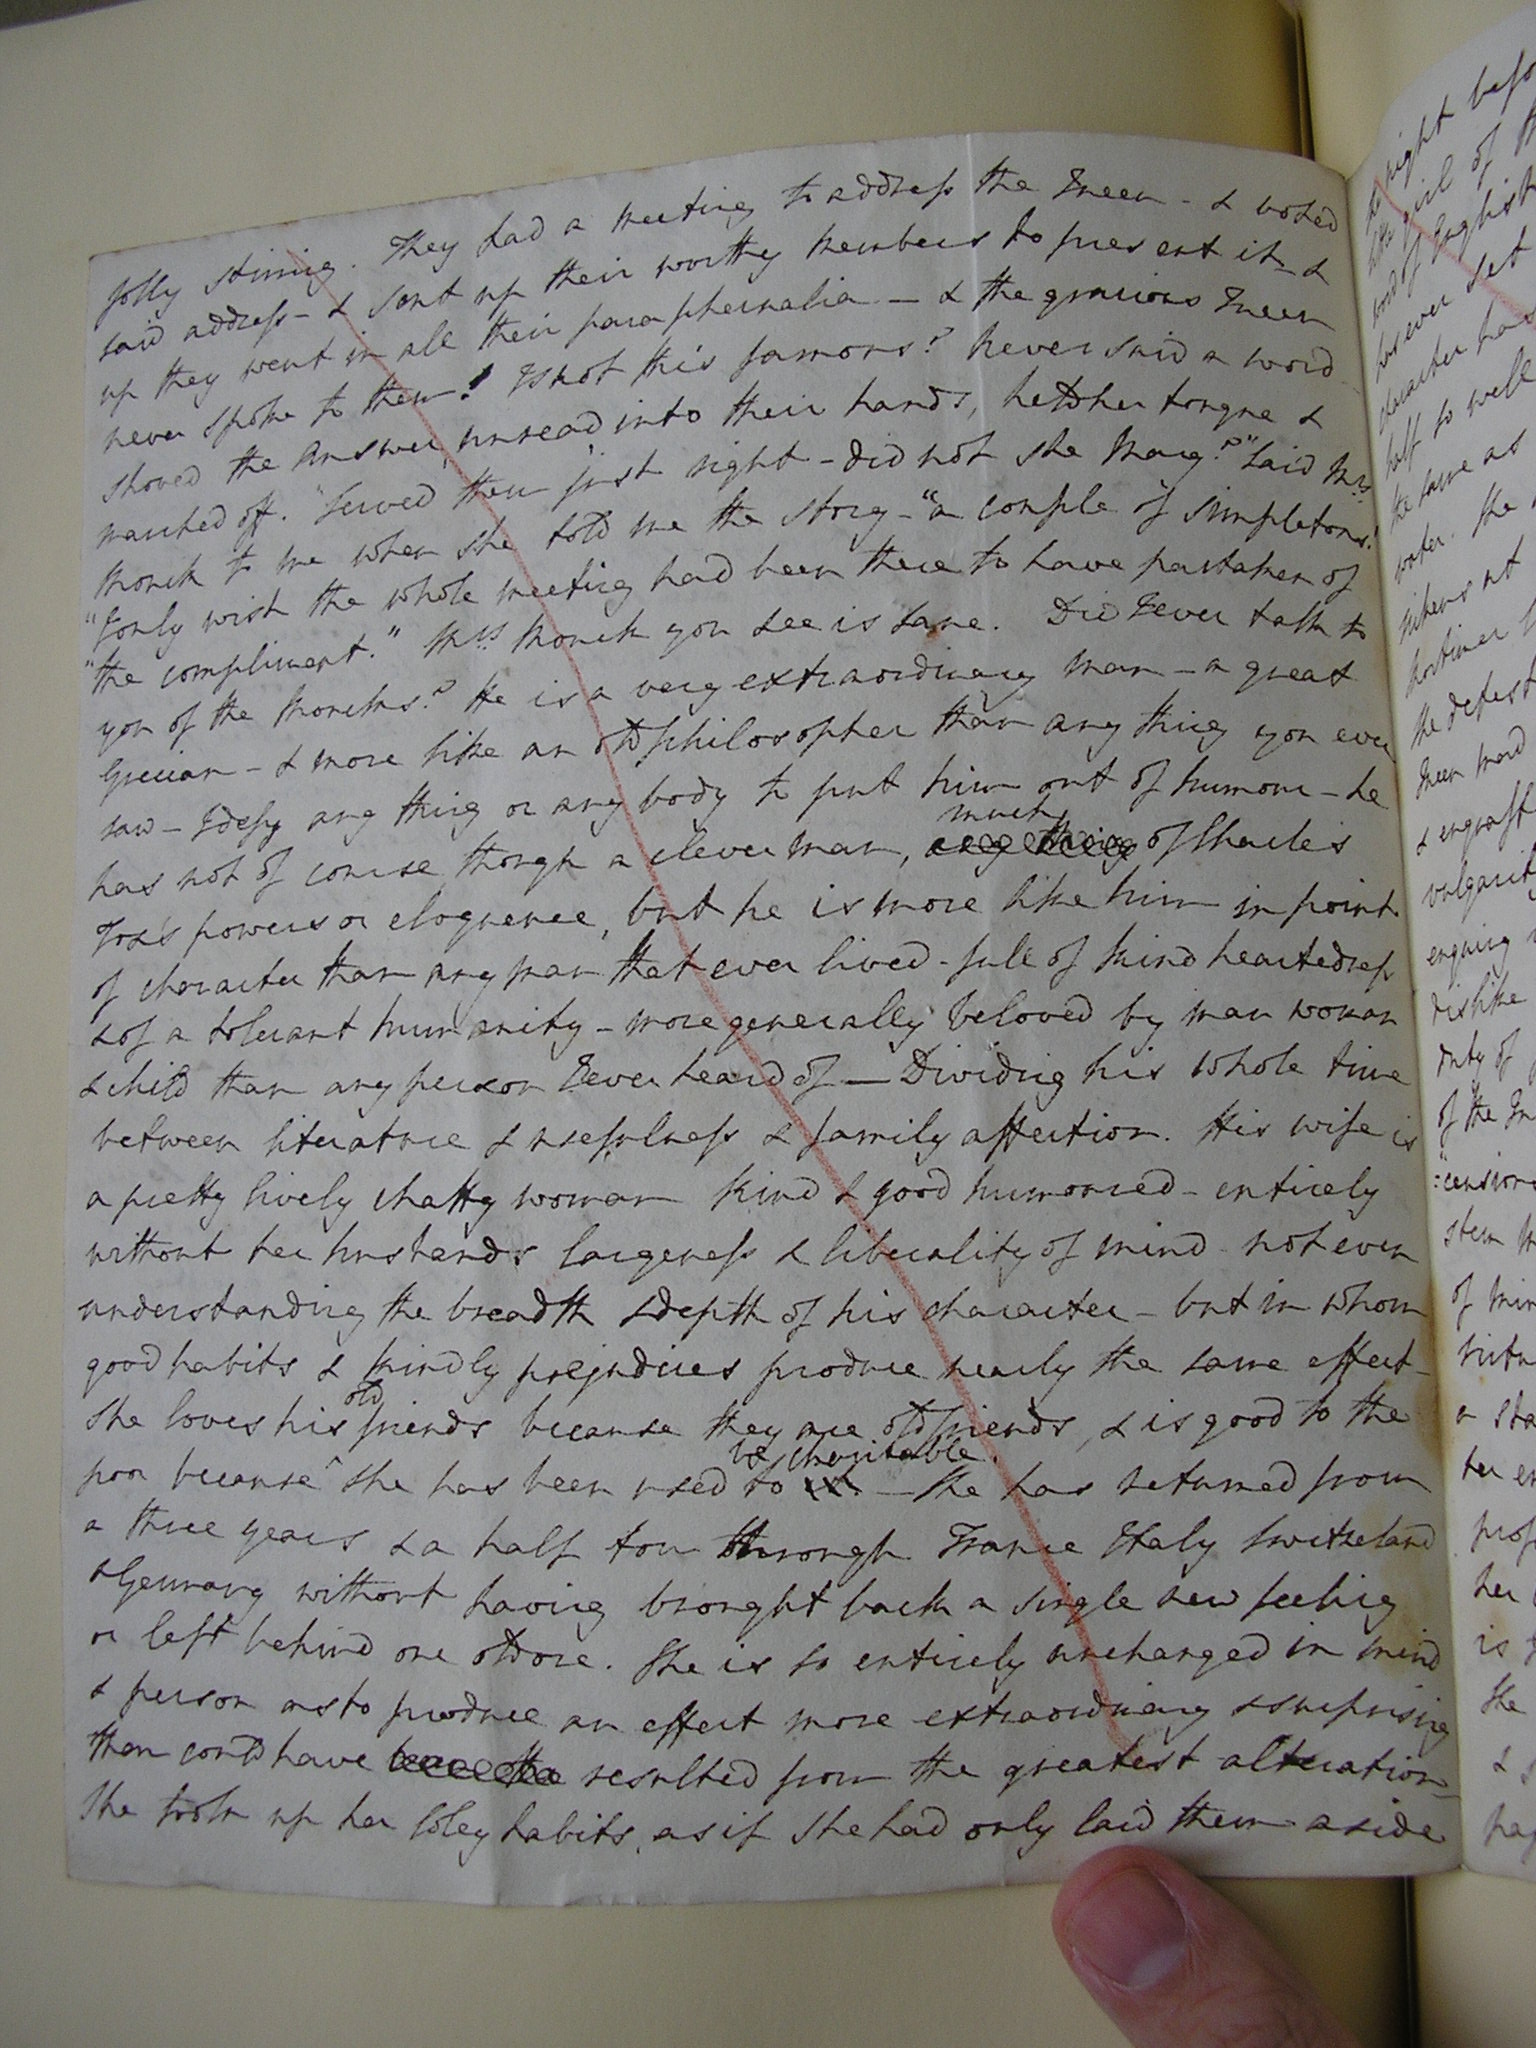 jolly stirring. They had a meeting to address the Queen - & voted
said address - & sent up their worthy Members to present it - &
up they went in all their paraphernalia - & the gracious Queen
never spoke to them! Is not this famous? Never said a word -
shoved the Answer, unread, into their hands, held her tongue &
marched off. "Served them just right - did not she Mary?" said Mrs.
Monck to me when she told me the story - "a couple of simpletons!
"I only wish the whole meeting had been there to have partaken of
"the compliment." Mrs. Monck you see is sane. Did I ever talk to
you of the Moncks? He is a very extraordinary man - a great
Grecian - & more like an old philosopher than any thing you ever
saw - I defy any thing or any body to put him out of humour - he
has not of course though a clever man, much of Charles
Fox's powers or eloquence, but he is more like him in point
of character than any man that ever lived - full of kind heartedness
& of a tolerant humanity - more generally beloved by man woman
& child than any person I ever heard of - Dividing his whole time
between literature & usefulness & family affection. His wife is
a pretty lively chatty woman kind & good humoured - entirely
without her husbands largeness & liberality of mind - not even
understanding the breadth & depth of his character - but in whom
good habits & kindly prejudices produce nearly the same effect -
She loves his old friends because they are old friends, & is good to the
poor because she has been used to be charitable. - She has returned from
a three years & a half tour through France Italy Switzeland
& Germany without having brought back a single new feeling
or left behind one old one. She is so entirely unchanged in mind
& person as to produce an effect more extraordinary & surprising
than could have resulted from the greatest alteration -
She took up her Coley habits, as if she had only laid them aside
he night befo
little girl of th
word of English
has ever set
character has
half so well
the same as
water. She
Mortimer
the defest
Queen
& engraft
vulgarity
enquiry
dislike
duty of
of the
stern
of min
a sta
her
is
She
&